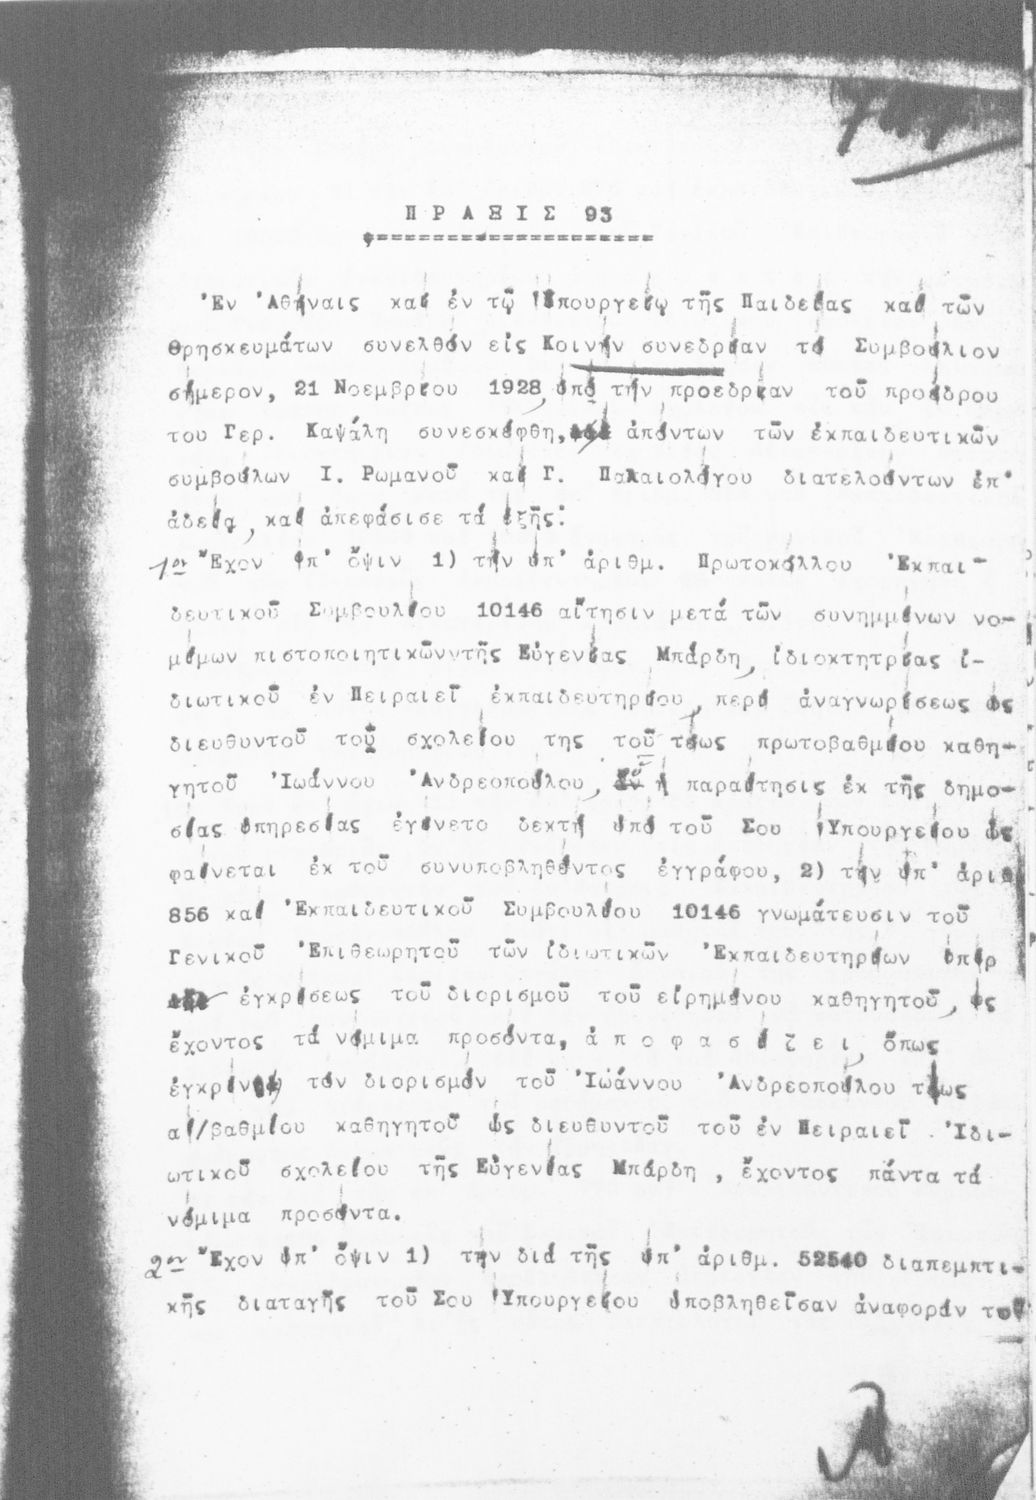 ΠΡΑΞΙΣ 93
Ἐν Ἀθήναις καί ἐν τῷ Ὑπουργείῳ τῆς Παιδείας καί τῶν
Θρησκευμάτων συνελθόν εἰς Κοινήν συνεδρίαν τό Συμβούλιον
σήμερον, 21 Νοεμβρίου 1928, ὑπό τήν προεδρίαν τοῦ προέδρου
του Γερ. Καψάλη συνεσκέφθη, ἀπόντων τῶν ἐκπαιδευτικῶν
συμβούλων Ι. Ρωμανοῦ καί Γ. Παλαιολόγου διατελούντων ἐπ'
ἀδείᾳ, καί ἀπεφάσισε τά ἑξῆς:
1ον Ἔχον ὑπ' ὄψιν 1) τήν ὑπ' ἀριθμ. Πρωτοκόλλου Ἐκπαι-
δευτικοῦ Συμβουλίου 10146 αἴτησιν μετά τῶν συνημμένων νο-
μίμων πιστοποιητικῶν τῆς Εὐγενίας Μπάρδη, ἰδιοκτητρίας ἰ-
διωτικοῦ ἐν Πειραιεῖ ἐκπαιδευτηρίου, περί ἀναγνωρίσεως ὡς
διευθυντοῦ τοῦ σχολείου της τοῦ τέως πρωτοβαθμίου καθη-
γητοῦ Ἰωάννου Ἀνδρεοπούλου, οὗ ἡ παραίτησις ἐκ τῆς δημο-
σίας ὑπηρεσίας ἐγένετο δεκτή ὑπό τοῦ Σου Ὑπουργείου ὡς
φαίνεται ἐκ τοῦ συνυποβληθέντος ἐγγράφου, 2) τήν ὑπ' ἀριθ
856 καί Ἐκπαιδευτικοῦ Συμβουλίου 10146 γνωμάτευσιν τοῦ
Γενικοῦ Ἐπιθεωρητοῦ τῶν ἰδιωτικῶν Ἐκπαιδευτηρίων ὑπέρ
ἐγκρίσεως τοῦ διορισμοῦ τοῦ εἰρημένου καθηγητοῦ, ὡς
ἔχοντος τά νόμιμα προσόντα, ἀποφασίζει, ὅπως
ἐγκρίνῃ τόν διορισμόν τοῦ Ἰωάννου Ἀνδρεοπούλου τέως
α'/βαθμίου καθηγητοῦ ὡς διευθυντοῦ τοῦ ἐν Πειραιεῖ Ἰδι-
ωτικοῦ σχολείου τῆς Εὐγενίας Μπάρδη, ἔχοντος πάντα τά
νόμιμα προσόντα.
2ον Ἔχον ὑπ' ὄψιν 1) τήν διά τῆς ὑπ' ἀριθμ. 52540 διαπεμπτι-
κῆς διαταγῆς τοῦ Σου Ὑπουργείου ὑποβληθεῖσαν ἀναφοράν τοῦ